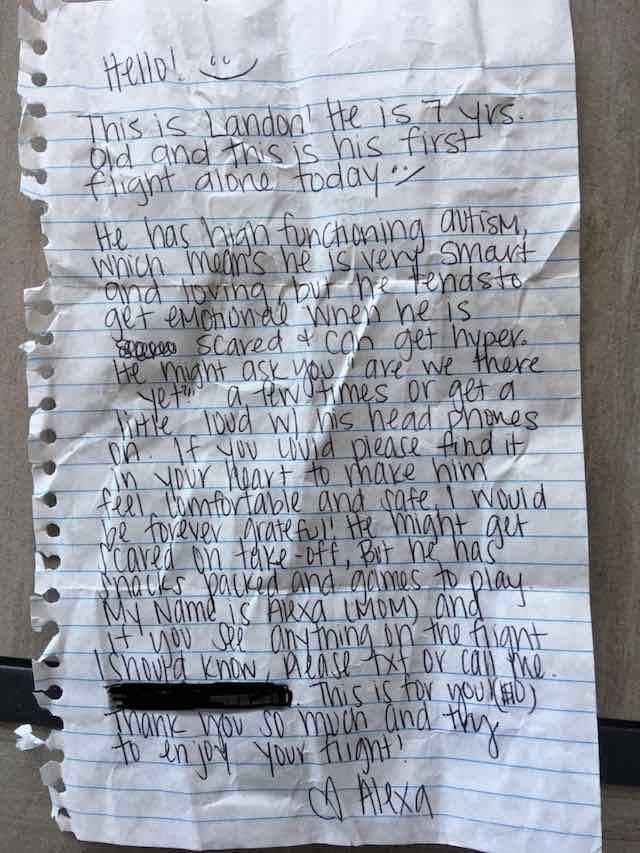 Hello! :)
This is Landon! He is 7 yrs.
old and this is his first
flight alone today :)
He has high functioning autism,
which means he is very smart
and loving, but he tends to
get emotional when he is
scared & can get hyper.
He might ask you "are we there
yet" a few times or get a
little loud w/ his head phones
on. If you could please find it
in your heart to make him
feel comfortable and safe, I would
be forever grateful! He might get
scared on take-off, But he has
snacks packed and games to play.
My Name is Alexa (MOM) and
if you see anything on the flight
I should know, please txt or call me.
. This is for you! ($10)
Thank you so much and try
to enjoy your flight!
♡ Alexa